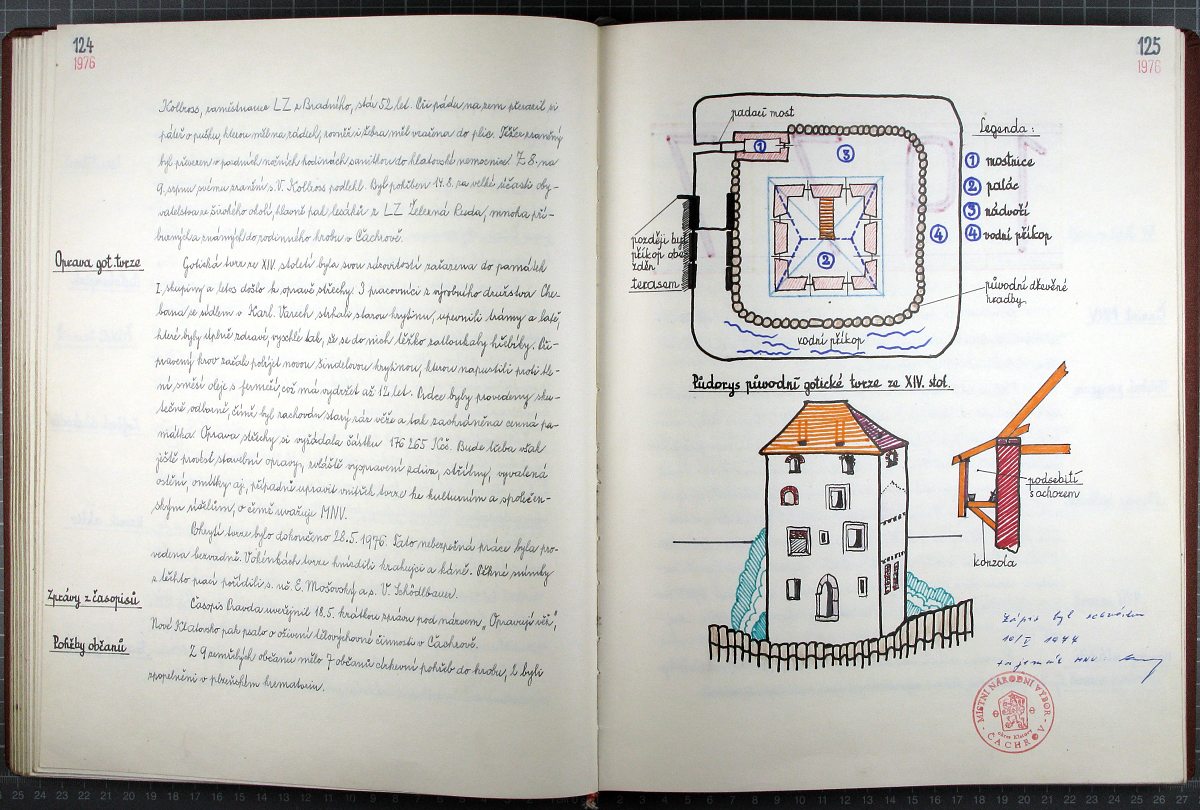 124
1976
Kollross, zaměstnance LZ z Bradného, stár 52 let. Při pádu na zem přerazil si
páteř o pušku, kterou měl na zádech, rovněž i žebra měl vražena do plic. Těžce zraněný
byl převezen v pozdních nočních hodinách sanitkou do klatovské nemocnice 7.8. na
9. srpnu svému zranění s. V. Kollross podlehl. Byl pohřben 14.8. za velké účasti oby-
vatelstva ze širokého okolí, hlavně pak lesáků z LZ Železná Ruda, mnoha pří-
buzných a známých do rodinného hrobu v Čachrově.
Oprava got. tvrze
Gotická tvrz ze XIV. století byla svou zdravitostí zařazena do památek
I. skupiny a letos došlo k opravě střechy. 3 pracovníci z výrobního družstva Che-
bana se sídlem v Karl. Varech strhali starou krytinu, upevnili trámy a latě,
které byly úplně zdravé, vyschlé tak, že se do nich těžko zatloukaly hřebíky. Při-
pravený krov začali pokrývat novou šindelovou krytinou, kterou napustili proti hni-
ní směsí oleje s fermeží, což má vydržet až 12 let. Práce byly provedeny sku-
tečně odborně, čímž byl zachován starý ráz věže a tak zachráněna cenná pa-
mátka. Oprava střechy si vyžádala částku 176 265 Kčs. Bude třeba však
ještě provést stavební opravy, zvláště vyspravení zdiva, střílny, vyvalená
ostění, omítky aj., případně upravit vnitřek tvrze ke kulturním a společen-
ským účelům, o čemž uvažuje MNV.
Pokrytí tvrze bylo dokončeno 28.5.1976. Tato nebezpečná práce byla pro-
vedena bezvadně. V okénkách tvrze hnízdili krahujci a káně. Pěkné snímky
z těchto prací pořídili s. uč. E. Mošovský a s. V. Schödlbauer.
Zprávy z časopisů
Časopis Pravda uveřejnil 18.5. krátkou zprávu pod názvem „Opravují věž",
Nové Klatovsko pak psalo o oživení tělovýchovné činnosti v Čachrově.
Pohřby občanů
Z 9 zemřelých občanů mělo 7 občanů církevní pohřeb do hrobu, 2 byli
zpopelněni v plzeňském krematoriu.
125
1976
padací most
Legenda:
① mostnice
② palác
③ nádvoří
④ vodní příkop
1
3
2
4
později byl
příkop obe-
zděn
terasem
původní dřevěné
hradby
vodní příkop
Půdorys původní gotické tvrze ze XIV. stol.
podsebití
s achozem
konzola
Zápis byl schválen
10/I 1977
tajemník MNV:
MÍSTNÍ NÁRODNÍ VÝBOR
okres Klatovy
ČACHROV